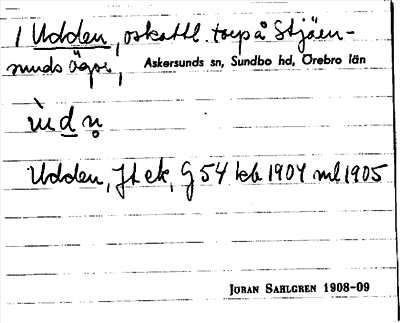 1 Udden, oskattl. torp å Stjärn-
sunds ägor, Askersunds sn, Sundbo hd, Örebro län
ùd n̥
Udden, Jt ek, G 54 kb 1904 ml 1905
JÖRAN SAHLGREN 1908-09